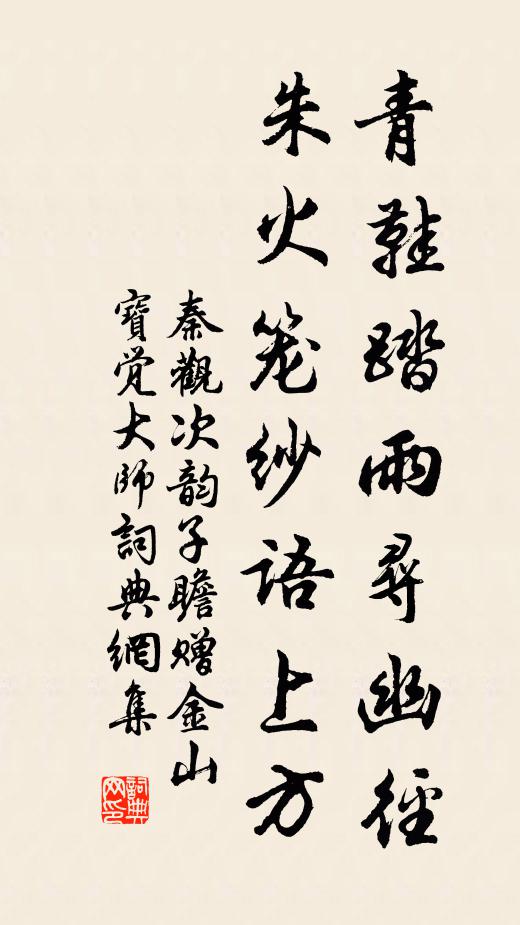 青鞋踏雨尋幽徑
朱火笼纱語上方
秦觀次韵子瞻赠金山
寶觉大師詞典網集
詞典
网印